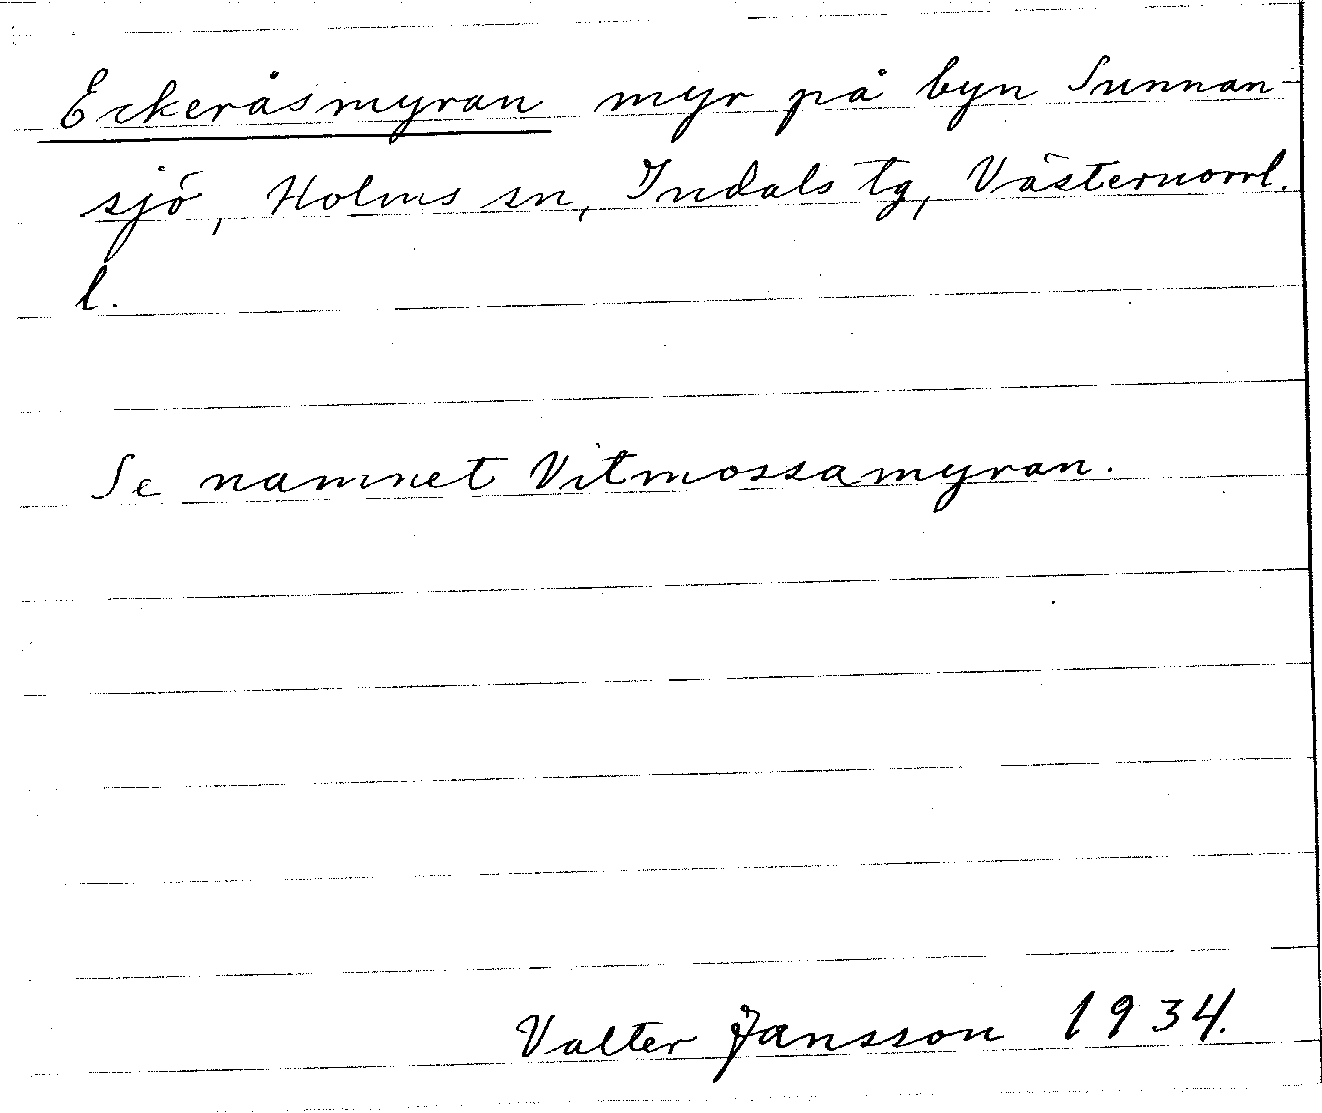 Eckeråsmyran myr på byn Sunnan-
sjö, Holms sn, Indals tg, Västernorrl.
l.
Se namnet Vitmossamyran.
Valter Jansson 1934.